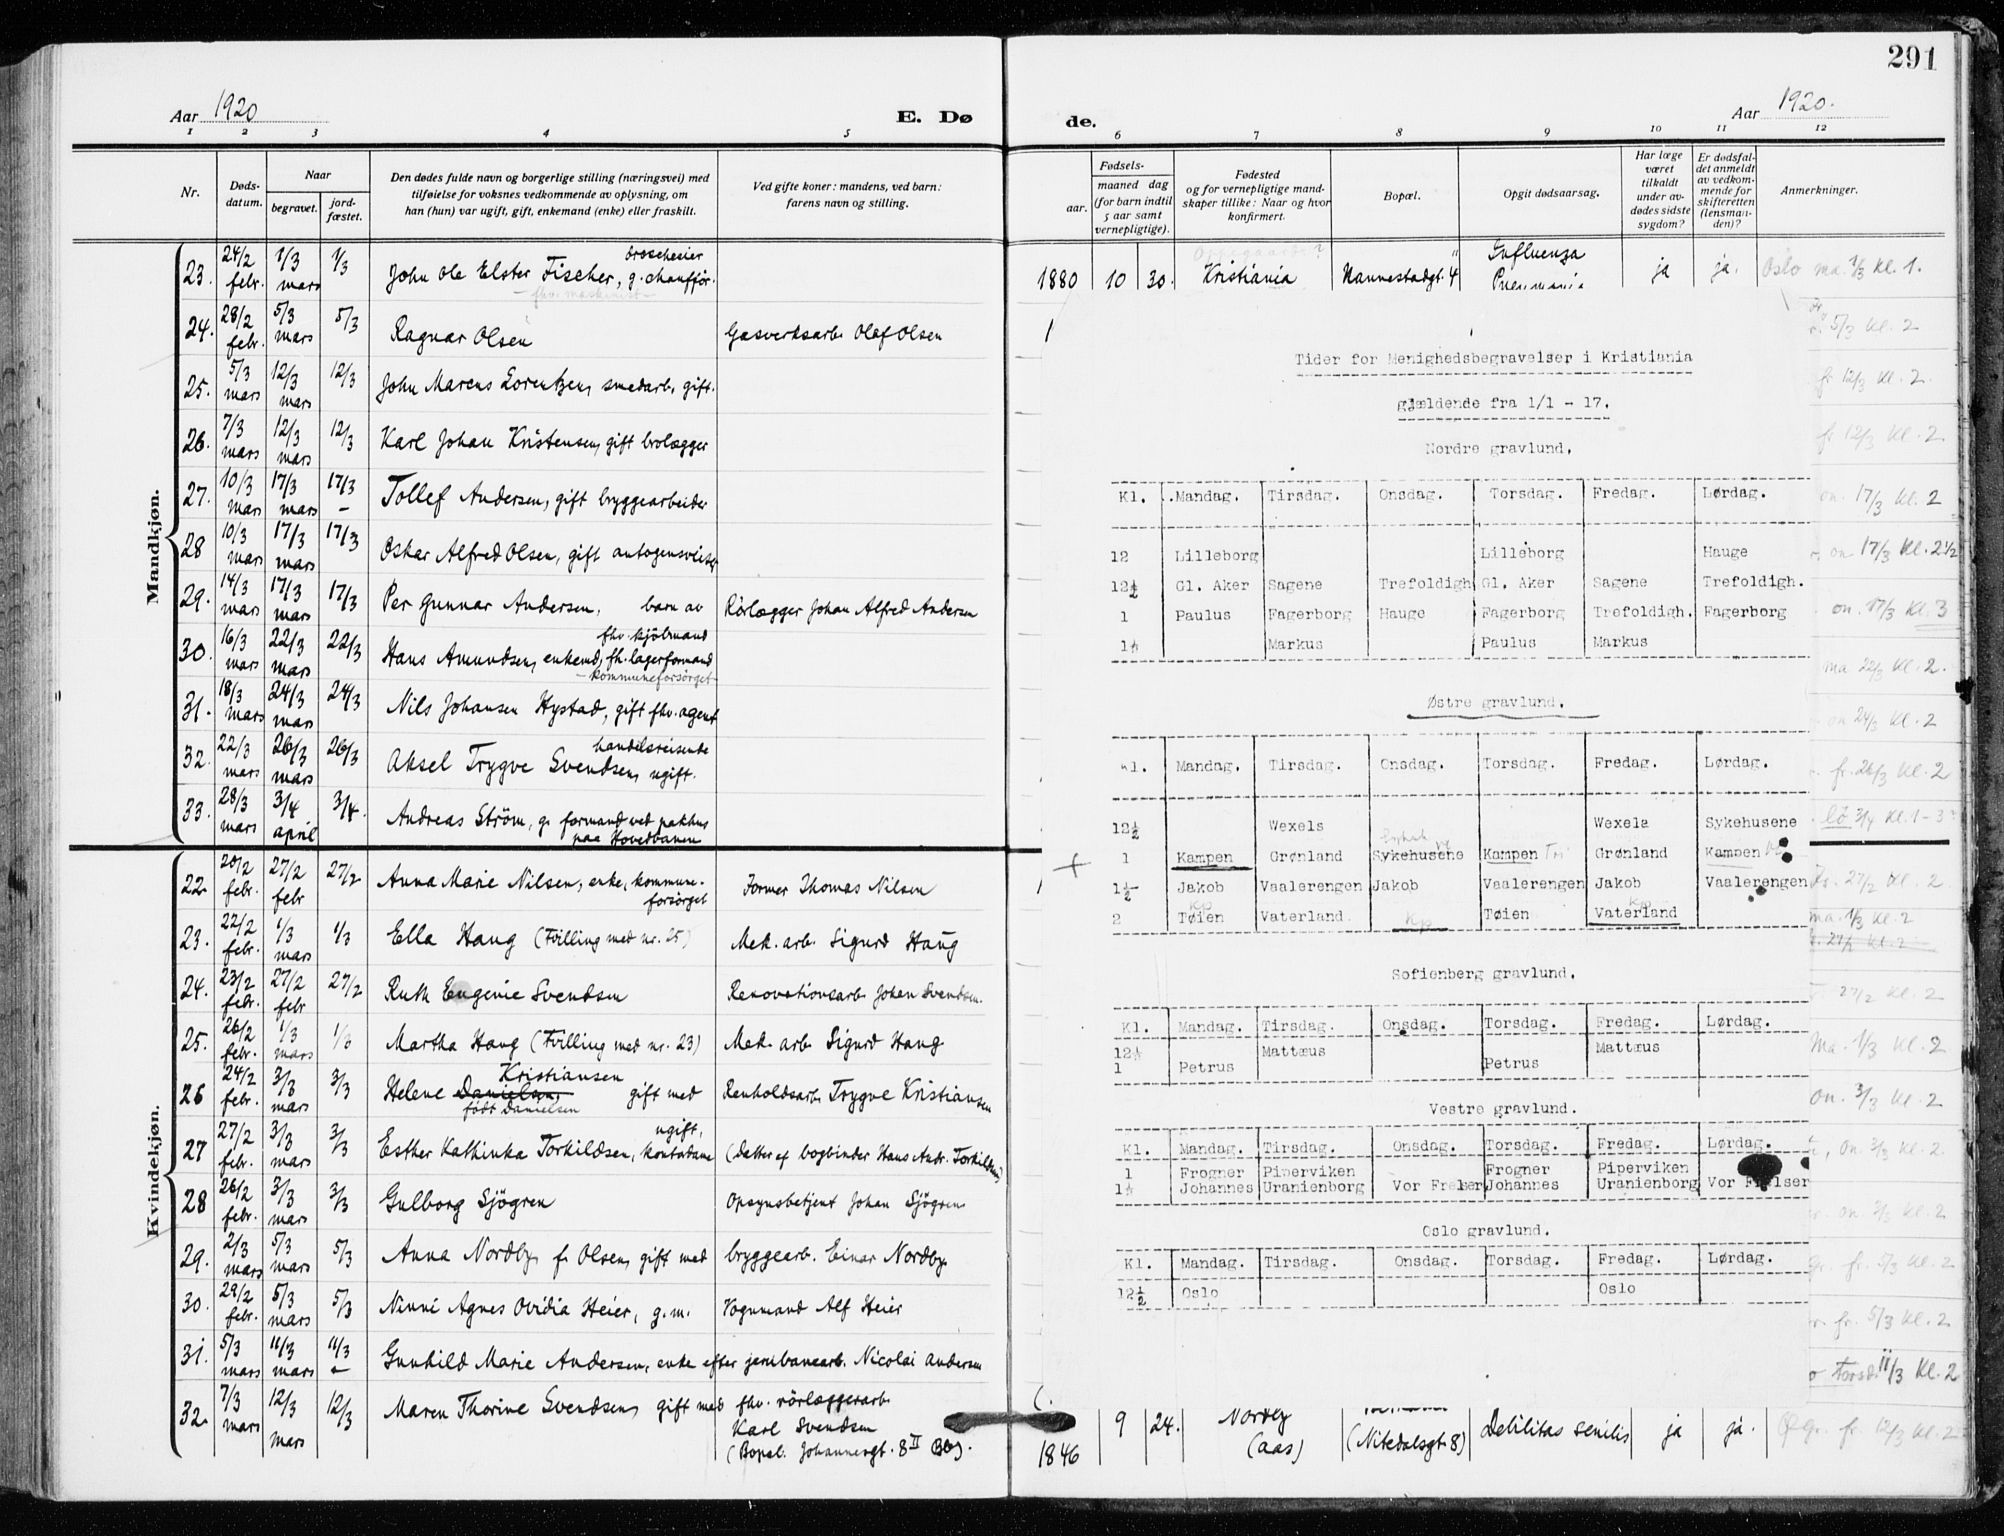 291
Aar 1920
E. Dø
de.
Aar 1920.
1 2 3 4 5 6 7 8 9 10 11 12
Nr.
Døds-
datum.
Naar
begravet.
jord-
fæstet.
Den dødes fulde navn og borgerlige stilling (næringsvei) med
tilføielse for voksnes vedkommende av oplysning, om
han (hun) var ugift, gift, enkemand (enke) eller fraskilt.
Ved gifte koner: mandens, ved barn:
farens navn og stilling.
Fødsels-
aar.
maaned dag
(for barn indtil
5 aar samt
vernepligtige).
Fødested
og for vernepligtige mand-
skaper tillike: Naar og hvor
konfirmert.
Bopæl.
Opgit dødsaarsag.
Har læge
været
tilkaldt
under av-
dødes sidste
sygdom?
Er dødsfal-
det anmeldt
av vedkom-
mende for
skifteretten
(lensman-
den)?
Anmerkninger.
Mandkjøn.
droscheeier
23. 24/2 febr. 1/3 mars 1/3 John Ole Elster Fischer, g. chauffør.
fhv. maskinist
1880 10 30. Kristiania Nannestadgt. 4 Influenza Pneumonia ja ja. Oslo ma. 1/3 kl. 1.
24. 28/2 febr. 5/3 mars 5/3 Ragnar Olsen Gasverksarb. Olaf Olsen 5/3 kl. 2
25. 5/3 mars 12/3 mars 12/3 John Marens Lorentzen, smedarb., gift. fr 12/3 kl. 2.
26. 7/3 mars 12/3 mars 12/3 Karl Johan Kristensen, gift brolægger fr 12/3 kl. 2.
27. 10/3 mars 17/3 mars 17/3 Tollef Andersen, gift bryggearbeider on. 17/3 kl. 2
28 10/3 mars 17/3 mars 17/3 Oskar Alfred Olsen, gift autogensveiser on 17/3 kl. 2½
29. 14/3 mars 17/3 mars 17/3 Per Gunnar Andersen, barn av Rørlægger Johan Alfred Andersen on. 17/3 kl. 3
fhv. kjølmand
30. 16/3 mars 22/3 mars 22/3 Hans Amundsen, enkemd, fh. lagerformand ma 22/3 kl. 2.
kommuneforsørget
31. 18/3 mars 24/3 mars 24/3 Nils Johansen Hystad, gift fhv. agent on 24/3 kl. 2
handelsreisende
32. 22/3 mars 26/3 mars 26/3 Aksel Trygve Svendsen, ugift. fr. 26/3 kl. 2
33. 28/3 mars 3/4 april 3/4. Andreas Strøm, g. formand ved pakhus lø 3/4 kl. 1-3
paa Hovedbanen
Kvindekjøn.
22. 20/2 febr. 27/2 febr 27/2 Anna Marie Nilsen, enke, kommune- Former Thomas Nilsen 27/2 kl. 2.
forsørget
23. 22/2 febr. 1/3 mars 1/3 Ella Haug (Tvilling med nr. 25) Mek. arb. Sigurd Haug ma. 1/3 kl. 2
27/2 kl. 2
24. 23/2 febr. 27/2 febr 27/2 Ruth Eugenie Svendsen Renovationsarb. Johan Svendsen. 27/2 kl. 2
25. 26/2 febr. 1/3 mars 1/3 Martha Haug (Tvilling med nr. 23) Mek. arb. Sigurd Haug Ma. 1/3 kl. 2
Kristiansen
26 24/2 febr. 3/3 mars 3/3 Helene Danielsen, gift med Renholdsarb. Trygve Kristiansen on. 3/3 kl. 2
født Danielsen
ugift,
27 27/2 febr. 3/3 mars 3/3 Esther Kathinka Torkildsen, kontordame (datter af bogbinder Hans Andr. Torkildsen) on 3/3 kl. 2
28 26/2 febr. 3/3 mars 3/3 Gulborg Sjögren Opsynsbetjent Johan Sjögren on. 3/3 kl. 2
29. 2/3 mars 5/3 mars 5/3 Anna Nordby f. Olsen, gift med bryggearb. Einar Nordby. fr. 5/3 kl. 2
30. 29/2 febr. 5/3 mars 5/3 Ninni Agnes Ovidia Heier, g. m. Vognmand Alf Heier fr. 5/3 kl. 2
31. 5/3 mars 11/3 mars 11/3 Gunhild Marie Andersen, enke efter jernbanearb. Nicolai Andersen Torsd. 11/3 kl. 2
32. 7/3 mars 12/3 mars 12/3 Maren Thorine Svendsen, gift med fhv. rørlæggerarb.
Karl Svendsen
(Bopæl. Johannesgt. 8 II).
1846 9 24. Nordby (aas) (Nitedalsgt. 8) Debilitas senilis ja ja. Ø. gr. fr. 12/3 kl. 2
Tider for Menighedsbegravelser i Kristiania
gjældende fra 1/1 - 17.
Nordre gravlund.
Kl. Mandag. Tirsdag. Onsdag. Torsdag. Fredag. Lørdag.
12 Lilleborg Lilleborg Hauge
12½ Gl. Aker Sagene Trefoldigh Gl. Aker Sagene Trefoldigh.
1 Paulus Fagerborg Hauge Fagerborg Trefoldigh. Fagerborg
1½ Markus Paulus Markus
Østre gravlund.
Kl. Mandag. Tirsdag. Onsdag. Torsdag. Fredag. Lørdag.
12½ Wexels Wexels Sykehusene
1 Kampen Grønland Sykehusene Kampen Grønland Kampen
1½ Jakob Vaalerengen Jakob Vaalerengen Jakob Vaalerengen
Kp Kp
2 Tøien Vaterland Kp Tøien Vaterland
Sofienberg gravlund.
Kl. Mandag. Tirsdag. Onsdag. Torsdag. Fredag. Lørdag.
12½ Mattæus Mattæus
1 Petrus Petrus
Vestre gravlund.
Kl. Mandag. Tirsdag. Onsdag. Torsdag. Fredag. Lørdag.
1 Frogner Piperviken Frogner Piperviken
1½ Johannes Uranienborg Vor Frelser Johannes Uranienborg Vor Frelser
Oslo gravlund.
Kl. Mandag. Tirsdag. Onsdag. Torsdag. Fredag. Lørdag.
12½ Oslo Oslo